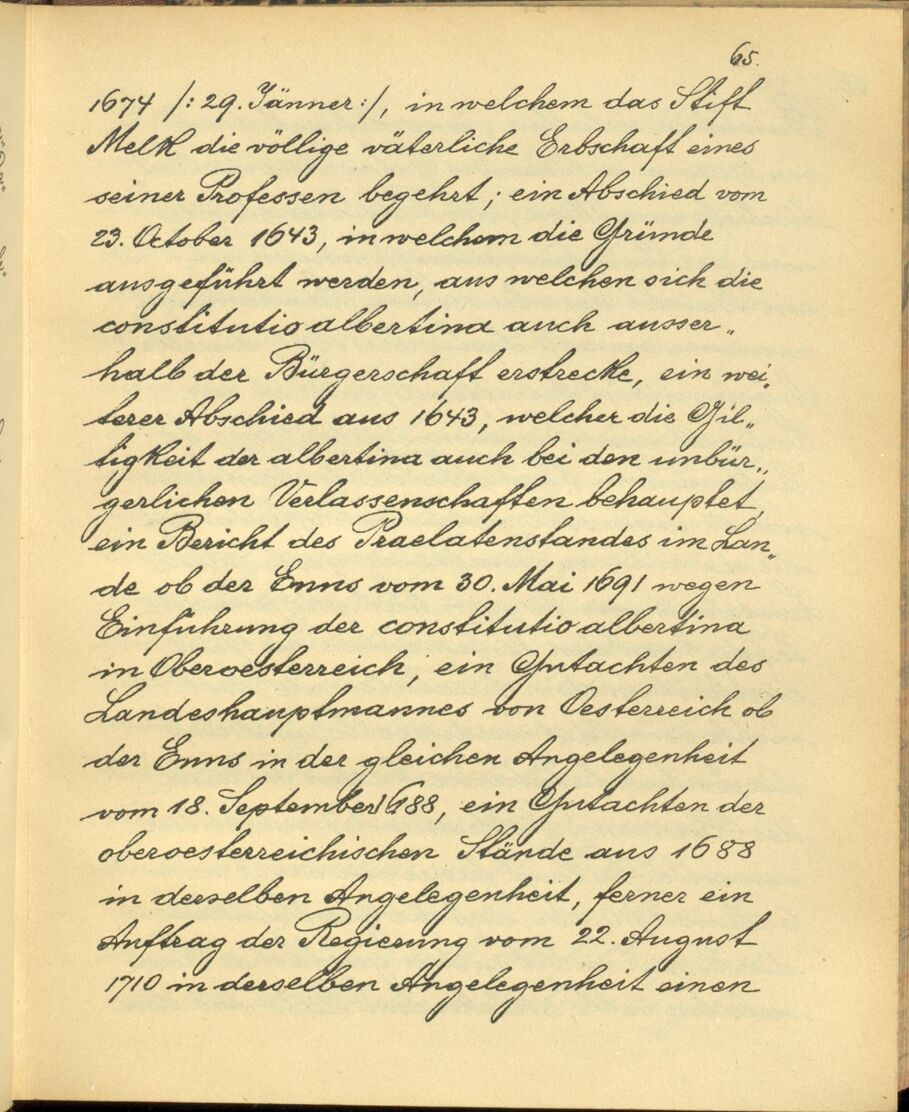 65.
1674 /: 29. Jänner :/, in welchem das Stift
Melk die völlige väterliche Erbschaft eines
seiner Professen begehrt; ein Abschied vom
23. October 1643, in welchem die Gründe
ausgeführt werden, aus welchen sich die
constitutio albertina auch ausser„
halb der Bürgerschaft erstrecke, ein wei„
terer Abschied aus 1643, welcher die Gil„
tigkeit der albertina auch bei den unbür„
gerlichen Verlassenschaften behauptet,
ein Bericht des Praelatenstandes im Lan„
de ob der Enns vom 30. Mai 1691 wegen
Einführung der constitutio albertina
in Oberoesterreich; ein Gutachten des
Landeshauptmannes von Oesterreich ob
der Enns in der gleichen Angelegenheit
vom 18. September 1688, ein Gutachten der
oberoesterreichischen Stände aus 1688
in derselben Angelegenheit, ferner ein
Auftrag der Regierung vom 22. August
1710 in derselben Angelegenheit einen